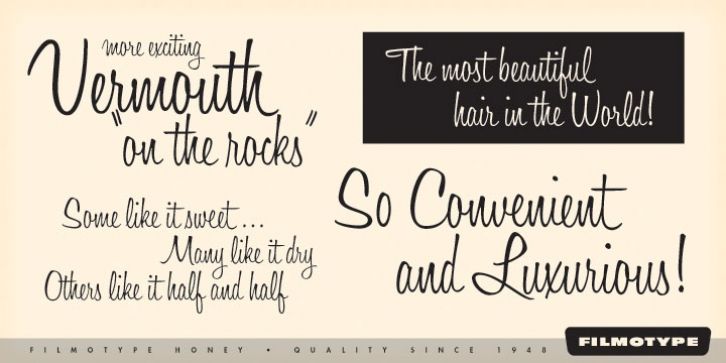 more exciting
Vermouth
"on the rocks"
The most beautiful
hair in the World!
Some like it sweet...
Many like it dry
Others like it half and half
So Convenient
and Luxurious!
FILMOTYPE HONEY • QUALITY SINCE 1948
FILMOTYPE